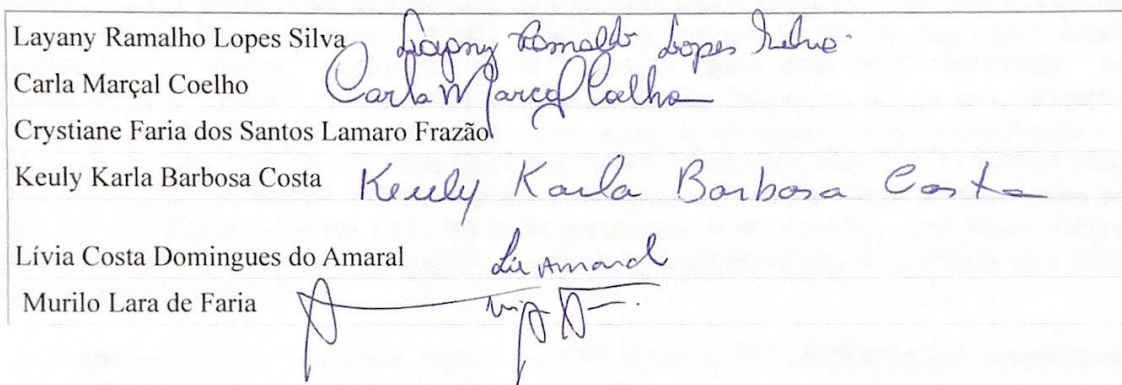 Layany Ramalho Lopes Silva Layany Ramalho Lopes Silva
Carla Marçal Coelho Carla Marçal Coelho
Crystiane Faria dos Santos Lamaro Frazão
Keuly Karla Barbosa Costa Keuly Karla Barbosa Costa
Lívia Costa Domingues do Amaral Amaral
Murilo Lara de Faria